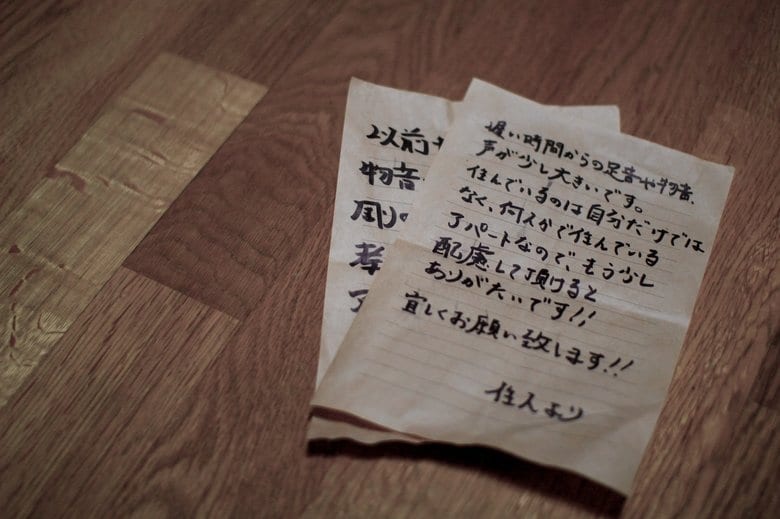 以前
物音
周り
考
ア
遅い時間からの足音や物音、
声が少し大きいです。
住んでいるのは自分だけでは
なく、何人かで住んでいる
アパートなので、もう少し
配慮して頂けると
ありがたいです!!
宜しくお願い致します!!
住人より